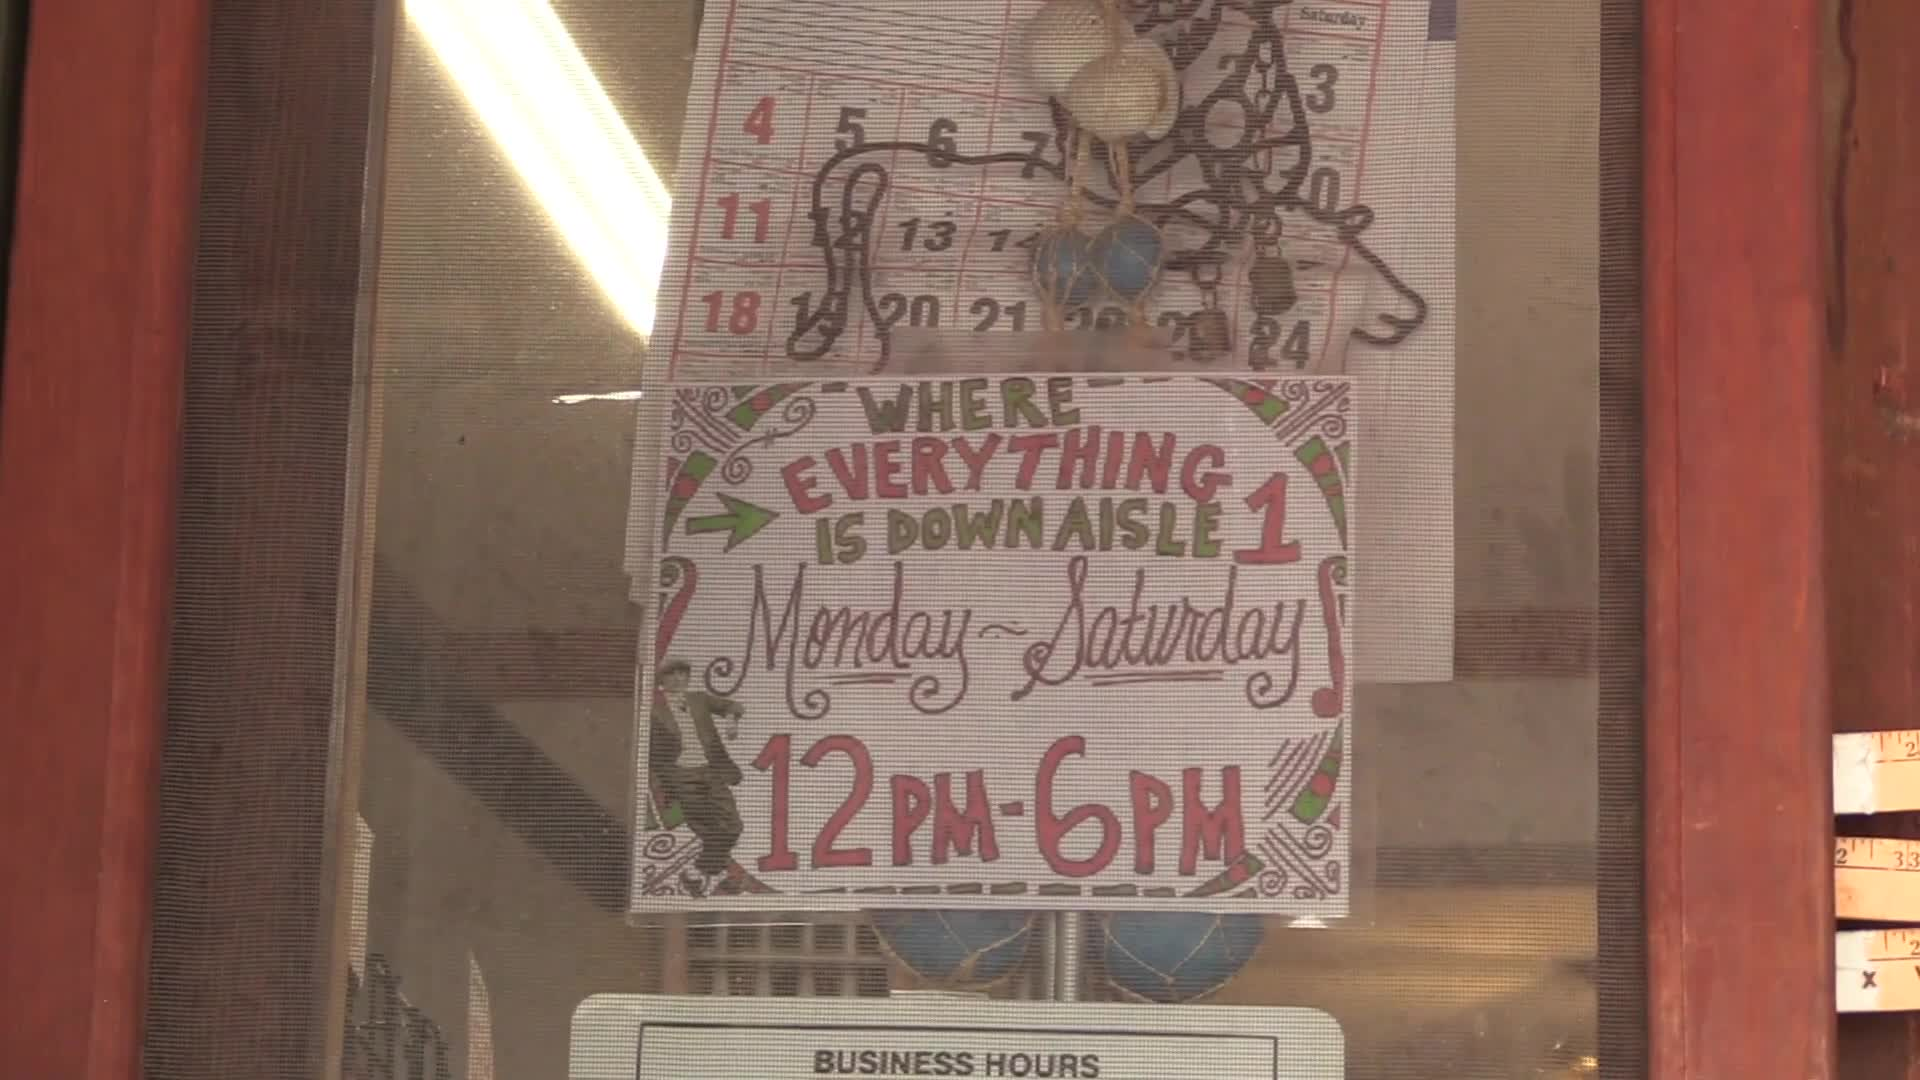 Saturday
2 3
4 5 6 7 0
11 12 13 14
18 19 20 21 22 23 24
WHERE
EVERYTHING
IS DOWN AISLE 1
Monday~Saturday
12PM-6PM
BUSINESS HOURS
2
2 33
2
x